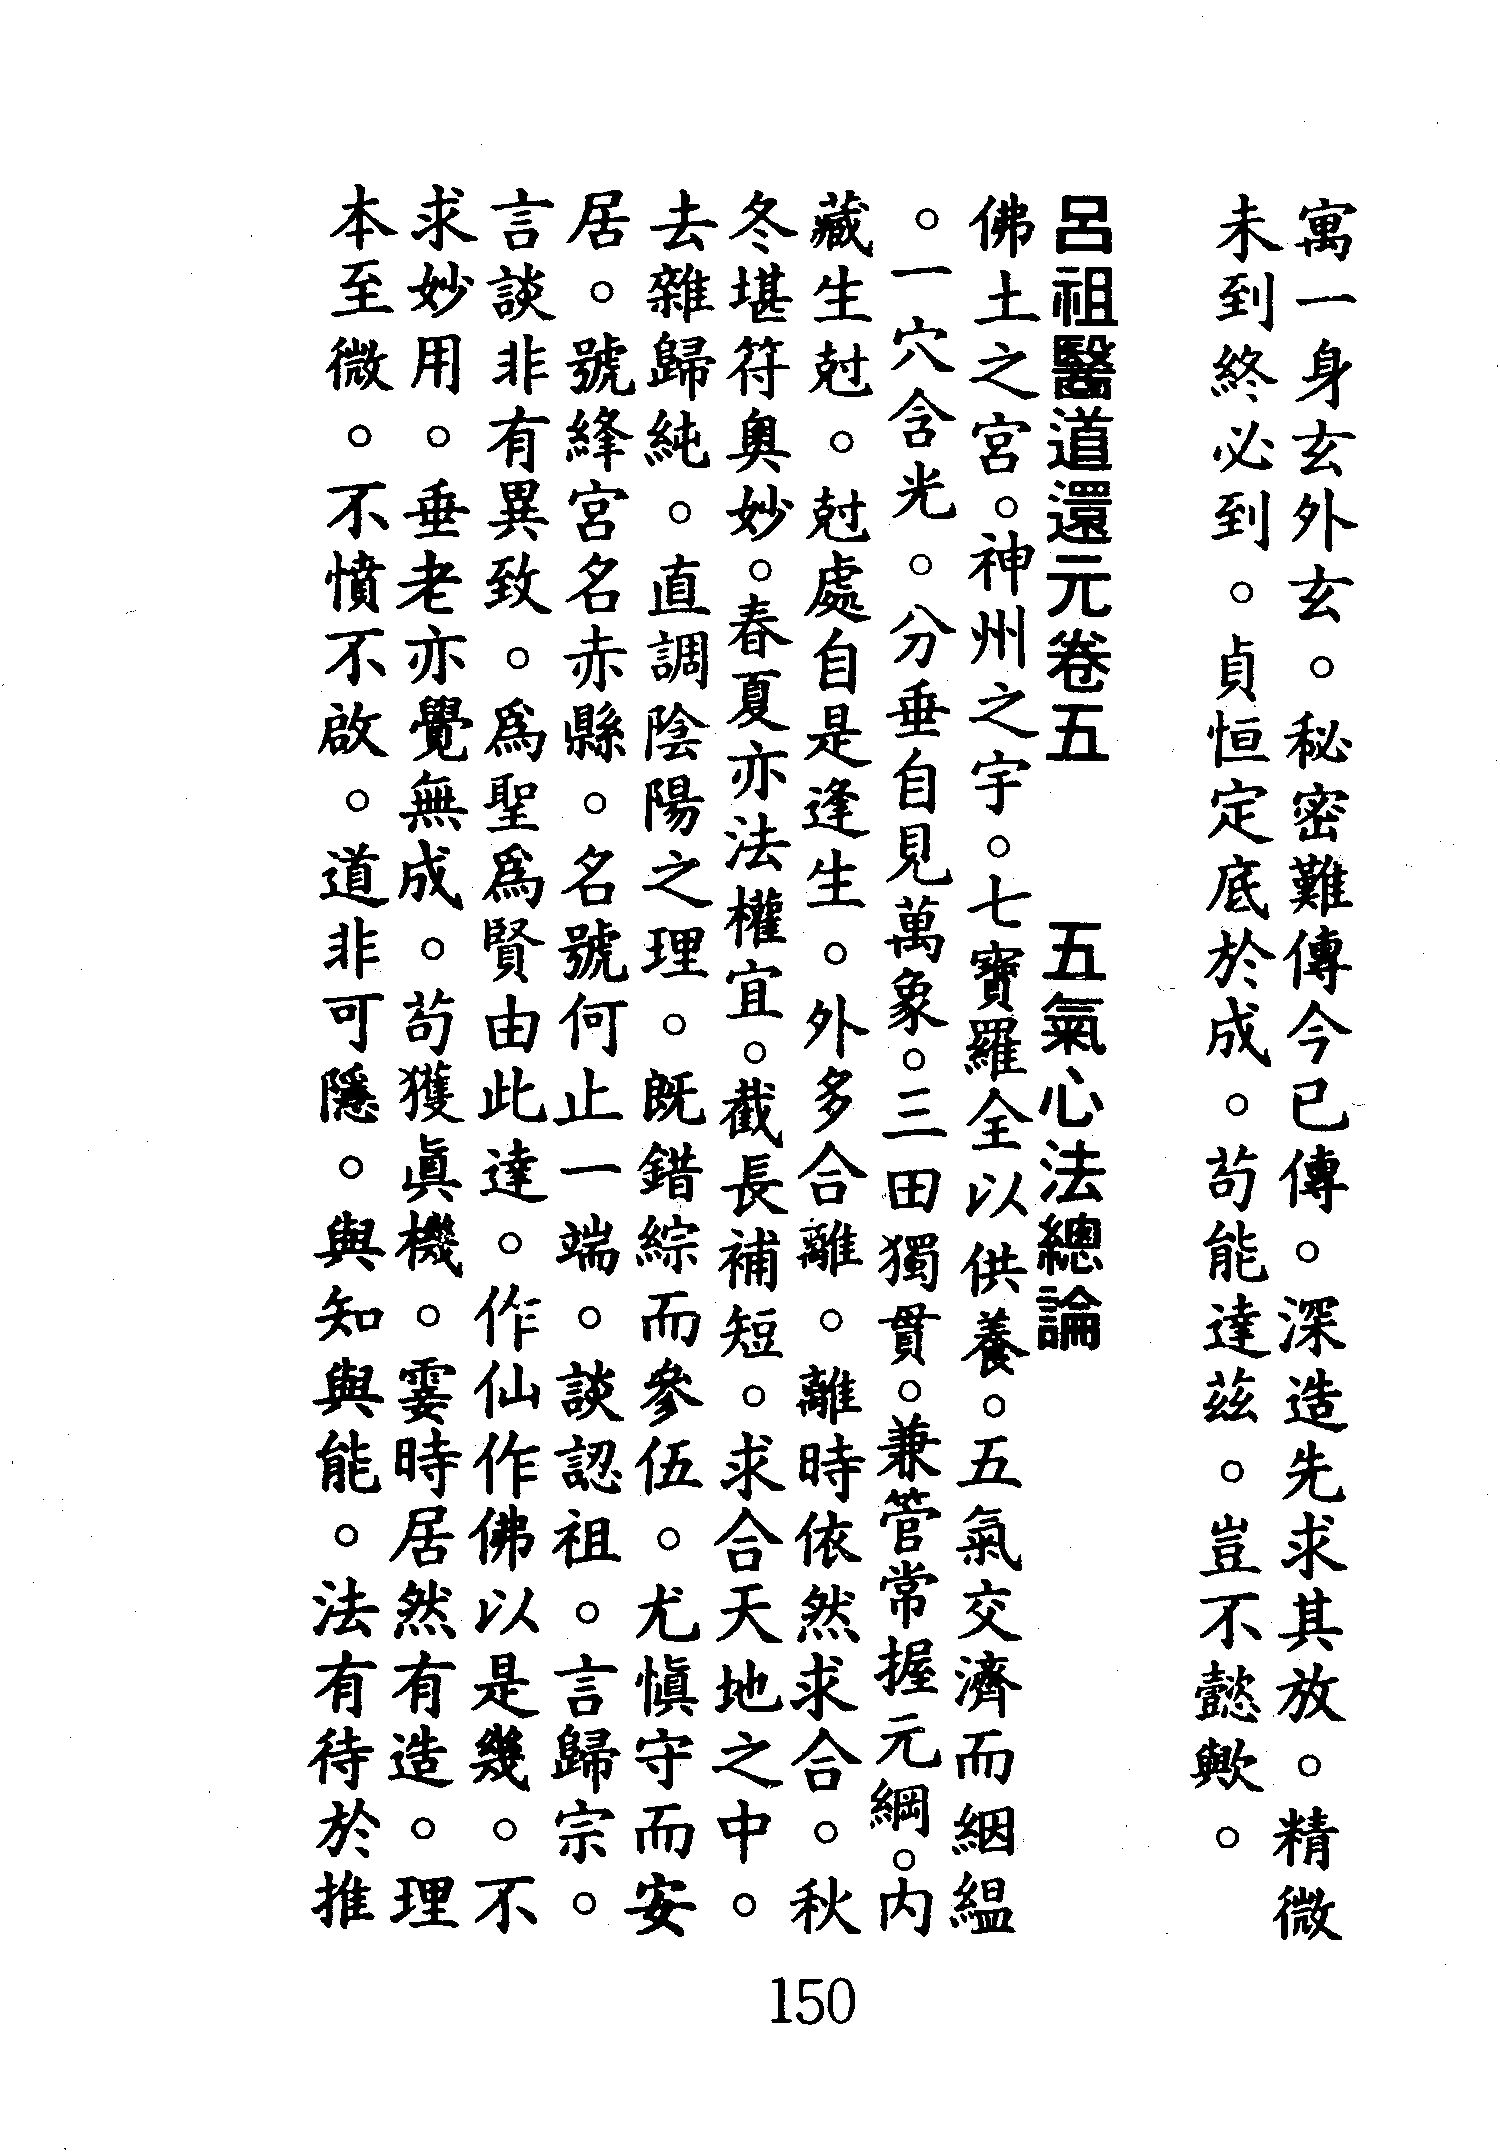 寓一身玄外玄。秘密難傳今已傳。深造先求其放。精微
未到終必到。貞恒定底於成。苟能達茲。豈不懿歟。
呂祖醫道還元卷五　五氣心法總論
佛土之宮。神州之宇。七寶羅全以供養。五氣交濟而絪縕
。一穴含光。分垂自見萬象。三田獨貫。兼管常握元綱。內
藏生尅。尅處自是逢生。外多合離。離時依然求合。秋
冬堪符奧妙。春夏亦法權宜。截長補短。求合天地之中。
去雜歸純。直調陰陽之理。既錯綜而參伍。尤慎守而安
居。號絳宮名赤縣。名號何止一端。談認祖。言歸宗。
言談非有異致。為聖為賢由此達。作仙作佛以是幾。不
求妙用。垂老亦覺無成。苟獲眞機。霎時居然有造。理
本至微。不憤不啟。道非可隱。與知與能。法有待於推
150